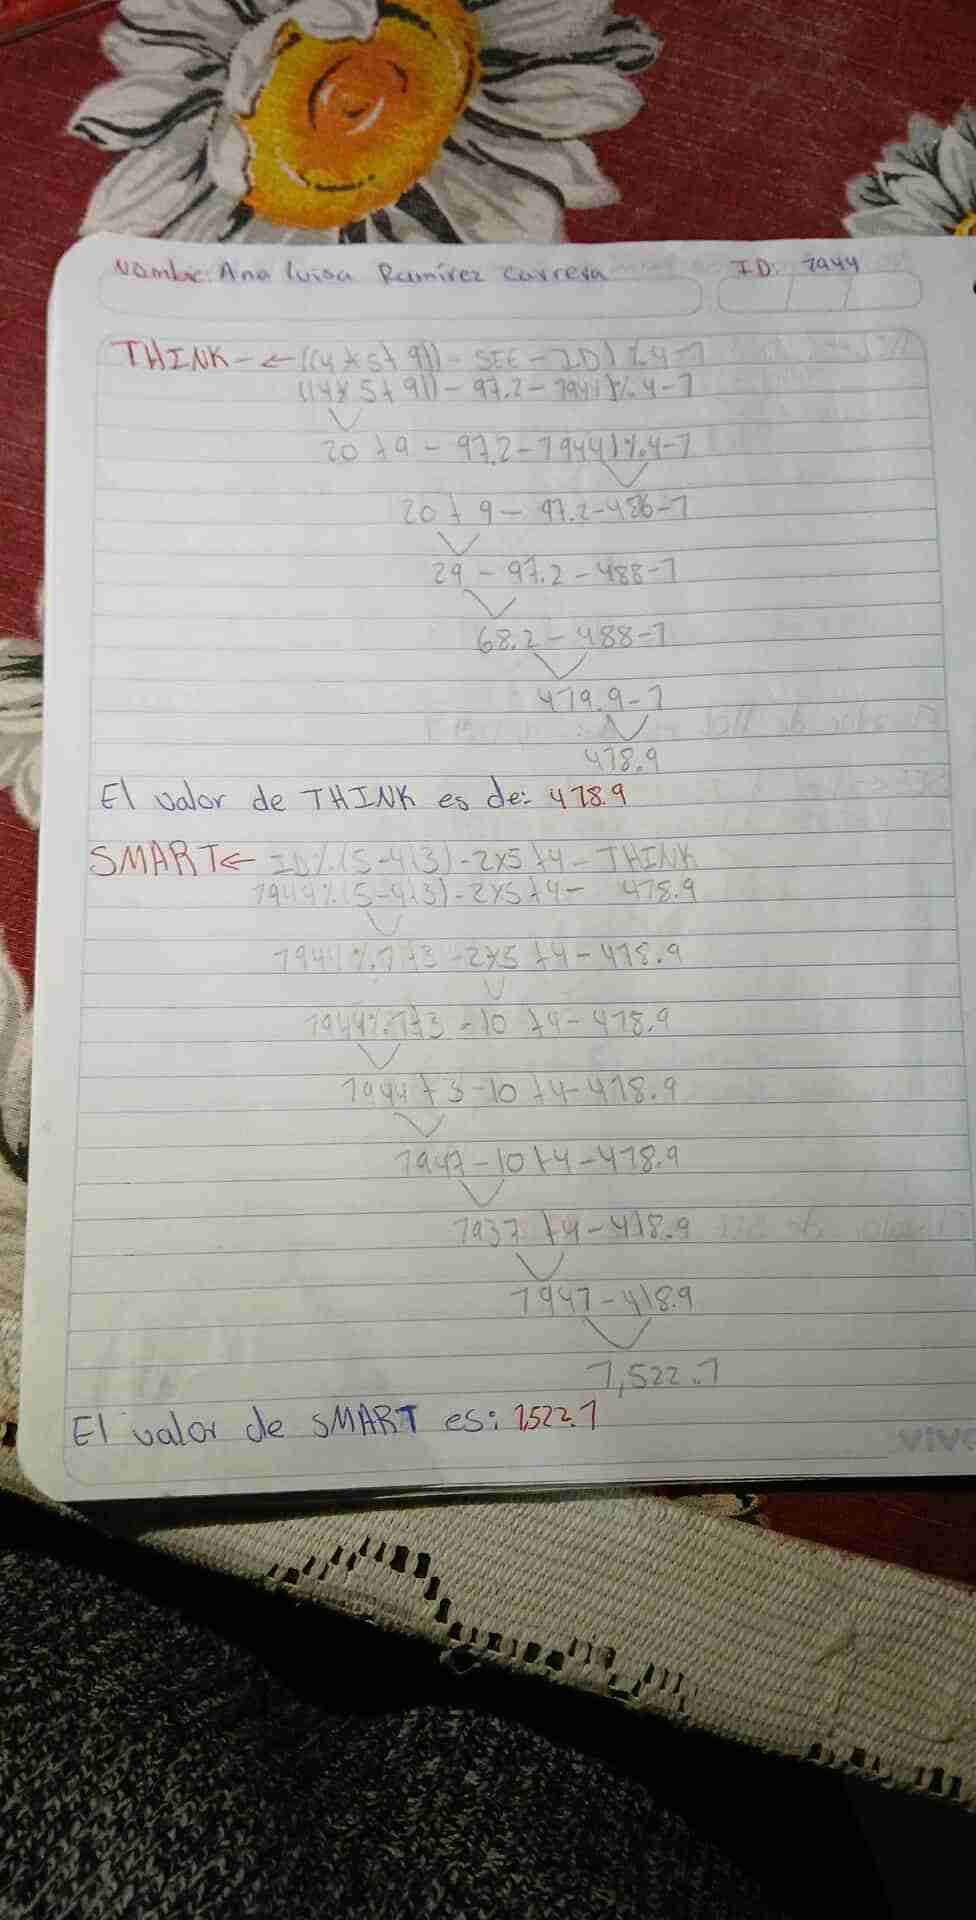 Nombre: Ana Luisa Ramírez Carrera ID: 1944
THINK-←((4*5+9))-SEE-ID)%4-1
((4*5+9))-97.2-1944)%4-1
20+9-97.2-1944)%4-1
20+9-97.2-486-1
29-97.2-488-1
68.2-488-1
479.9-1
478.9
El valor de THINK es de: 478.9
SMART← ID%(5-4)3)-2*5+4-THINK
1944%(5-4)3)-2*5+4- 478.9
1944)%1+3-2*5+4-478.9
1944%1+3-10+4-478.9
1944+3-10+4-478.9
1947-10+4-478.9
1937+4-418.9
1947-418.9
1,522.1
El valor de SMART es: 1522.1